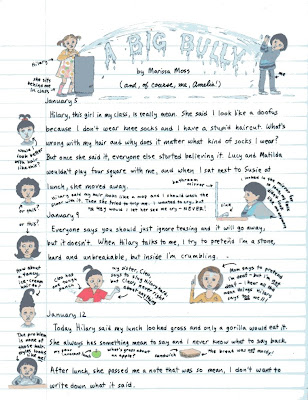 A BIG BULLY
by Marissa Moss
(and, of course, me, Amelia!)
Hilary
she sits behind me in class
me
January 5
Hilary, this girl in my class, is really mean. She said I look like a doofus
because I don't wear knee socks and I have a stupid haircut. What's
wrong with my hair and why does it matter what kind of socks I wear?
But once she said it, everyone else started believing it. Lucy and Matilda
wouldn't play four square with me, and when I sat next to Susie at
lunch, she moved away.
would I look better with hair like this?
bathroom mirror
Hilary said my hair looks like a mop and I should wash the
with it. Then she tried to trip me. I wanted to cry, but
no way would I let her see me cry - NEVER!
I looked in the
sink
or this?
or this?
January 9
Everyone says you should just ignore teasing and it will go away,
but it doesn't. When Hilary talks to me, I try to pretend I'm a stone,
hard and unbreakable, but inside I'm crumbling.
How about an ice-cream
Cleo has
my sister, Cleo, says to skip lunch
but Clearly never
Mom says to pretend
I'm deaf - but I'm not
deaf - I hear all the
mean things Hilary
says too well!
January 12
Today Hilary said my lunch looked gross and only a gorilla would eat it.
She always has something mean to say and I never know what to say back.
The problem is none of those hair styles
what's gross about an apple?
sandwich
or the bread was not moldy!
After lunch, she passed me a note that was so mean, I don't want to
write down what it said.